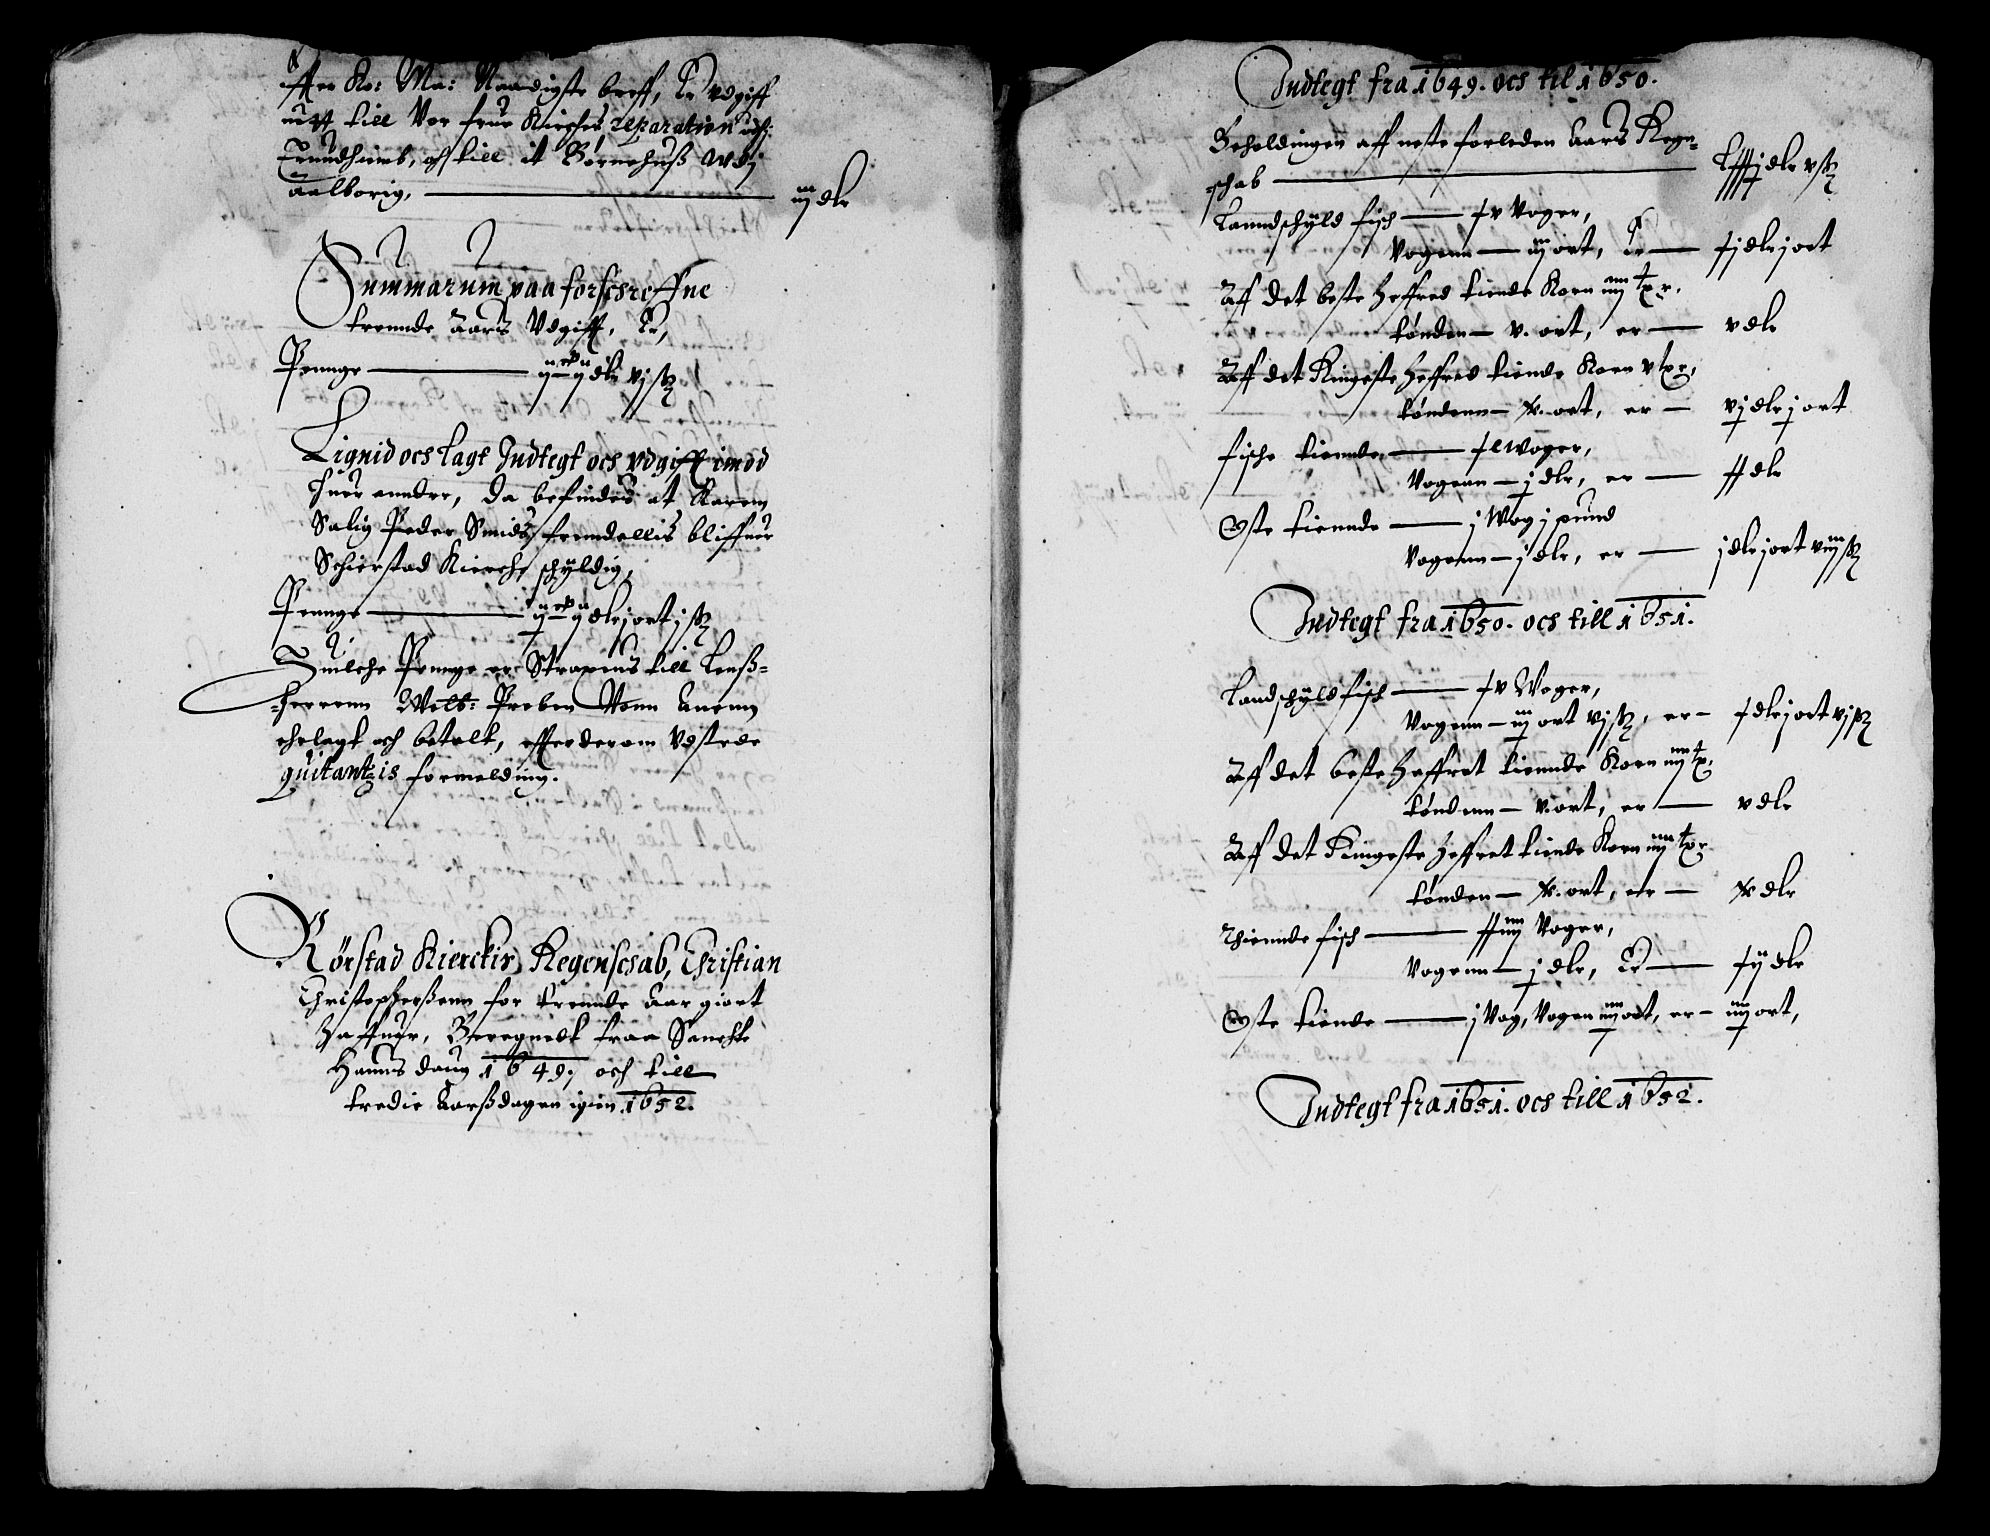 Effter Ko: Ma: Naadigste breff, Er vdgiff
uitt till Vor frue Kirches reparation vdj
Trundhiemb, och till it Børnehuß Wdj
Aalborig, — iiij dlr
Summarum paa forschreffne
trennde Aars Vdgifft, Er,
Pennge — dlr vj ß
Lignid och lagt Indtegt och vdgifft imod
huer anndre, da befindes at Karenn
Salig Peder Smids, fremdellis bliffuer
Schierstad Kierche schyldig,
Pennge — dlr j ort j ß
Huilche Pennge er Straxens till Lenß-
herrenn Welb: Preben Vonn Anenn
erlagt och betalt, effter derom Vdstede
quitantzis formelding.
Rörstad Kierckis Regenschab, Christian
Christopherßenn for trennde Aar giort
haffuer, Beregnedt fraa Sanchte
Hanns daug 1649, och till
tredie Aarßdagen igien 1652.
Indtegt fra 1649. och til 1650.
Beholdingen aff neste forleden Aars Regn-
schab — dlr v ß
Lanndschyld fisch — xv Voger,
Vogenn — iij ort, Er — xj dlr j ort
Aff det beste heffred tiende Korn iiij tr.
tønden — v. ort, er — v dlr
Aff det Ringeste heffred tiende Korn v tr,
tøndenn — x. ort, er — vj dlr j ort
fische tiennde — Woger,
Vogenn — j dlr, er — xx dlr
Oste tiennde — j Wog j pund
Vogenn — j dlr, er — j dlr j ort viij ß
Indtegt fra 1650. och till 1651.
Landschyld fisch — xv Woger,
Vogenn — iij ort vj ß, er — dlr j ort vj ß
Aff det beste heffret tiennde Korn iiij t.
tøndenn — v. ort, er — v dlr
Aff det Ringeste heffret tiende Korn iiij tr
tønden — x. ort, er — x dlr
Thiennde fisch — Voger,
Vogenn — j dlr, Er — dlr
Oste tiende — j Vog, Vogen iiij ort, er — iiij ort,
Indtegt fra 1651. och till 1652.